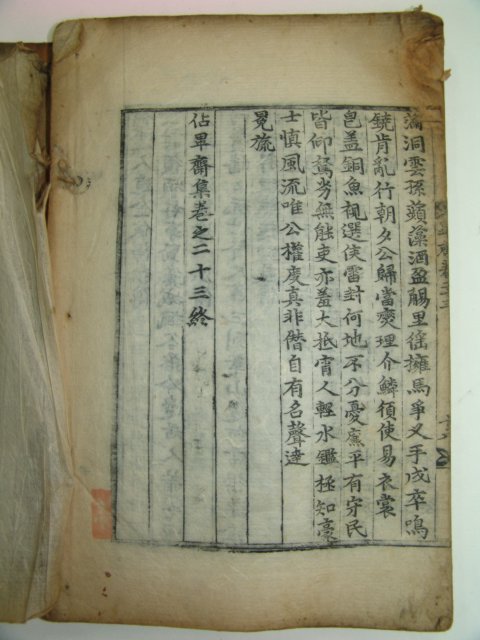 滿洞雲孫蘋藻酒盈觴里徭擁馬爭叉手戍卒鳴
鐃肯亂行朝夕公歸當燮理介鱗須使易衣裳
皀盖銅魚視選侯雷封何地不分憂廉平有守民
皆仰駑劣無能吏亦羞大抵宵人輕水鑑極知豪
士慎風流唯公權度真非僭自有名聲達
冕旒
佔畢齋集卷之二十三終